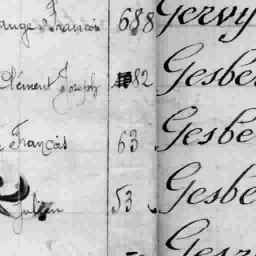 ange François 688 Gervy
Clément Joseph 82 Gesbe
François 63 Gesbe
Julien 53 Gesbe